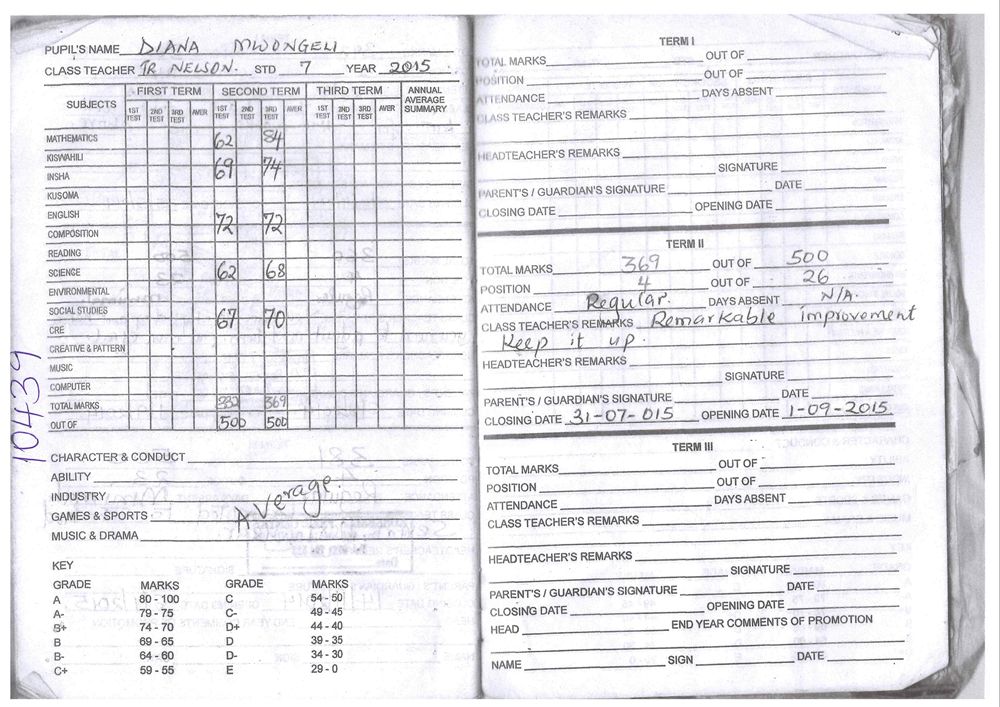 PUPIL'S NAME DIANA MWONGELI
CLASS TEACHER TR NELSON. STD 7 YEAR 2015
SUBJECTS FIRST TERM SECOND TERM THIRD TERM ANNUAL AVERAGE SUMMARY
1ST TEST 2ND TEST 3RD TEST AVER 1ST TEST 2ND TEST 3RD TEST AVER 1ST TEST 2ND TEST 3RD TEST AVER
MATHEMATICS 62 84
KISWAHILI
INSHA 69 74
KUSOMA
ENGLISH
COMPOSITION 72 72
READING
SCIENCE 62 68
ENVIRONMENTAL
SOCIAL STUDIES
CRE 67 70
CREATIVE & PATTERN
MUSIC
COMPUTER
TOTAL MARKS 332 369
OUT OF 500 500
CHARACTER & CONDUCT
ABILITY
INDUSTRY
GAMES & SPORTS Average.
MUSIC & DRAMA
KEY
GRADE MARKS GRADE MARKS
A 80 - 100 C 54 - 50
A- 79 - 75 C- 49 - 45
B+ 74 - 70 D+ 44 - 40
B 69 - 65 D 39 - 35
B- 64 - 60 D- 34 - 30
C+ 59 - 55 E 29 - 0
10439
TERM I
TOTAL MARKS OUT OF
POSITION OUT OF
ATTENDANCE DAYS ABSENT
CLASS TEACHER'S REMARKS
HEADTEACHER'S REMARKS
SIGNATURE
PARENT'S / GUARDIAN'S SIGNATURE DATE
CLOSING DATE OPENING DATE
TERM II
TOTAL MARKS 369 OUT OF 500
POSITION 4 OUT OF 26
ATTENDANCE Regular. DAYS ABSENT N/A.
CLASS TEACHER'S REMARKS Remarkable improvement
Keep it up.
HEADTEACHER'S REMARKS
SIGNATURE
PARENT'S / GUARDIAN'S SIGNATURE DATE
CLOSING DATE 31-07-015 OPENING DATE 1-09-2015
TERM III
TOTAL MARKS OUT OF
POSITION OUT OF
ATTENDANCE DAYS ABSENT
CLASS TEACHER'S REMARKS
HEADTEACHER'S REMARKS
SIGNATURE
PARENT'S / GUARDIAN'S SIGNATURE DATE
CLOSING DATE OPENING DATE
HEAD END YEAR COMMENTS OF PROMOTION
NAME SIGN DATE